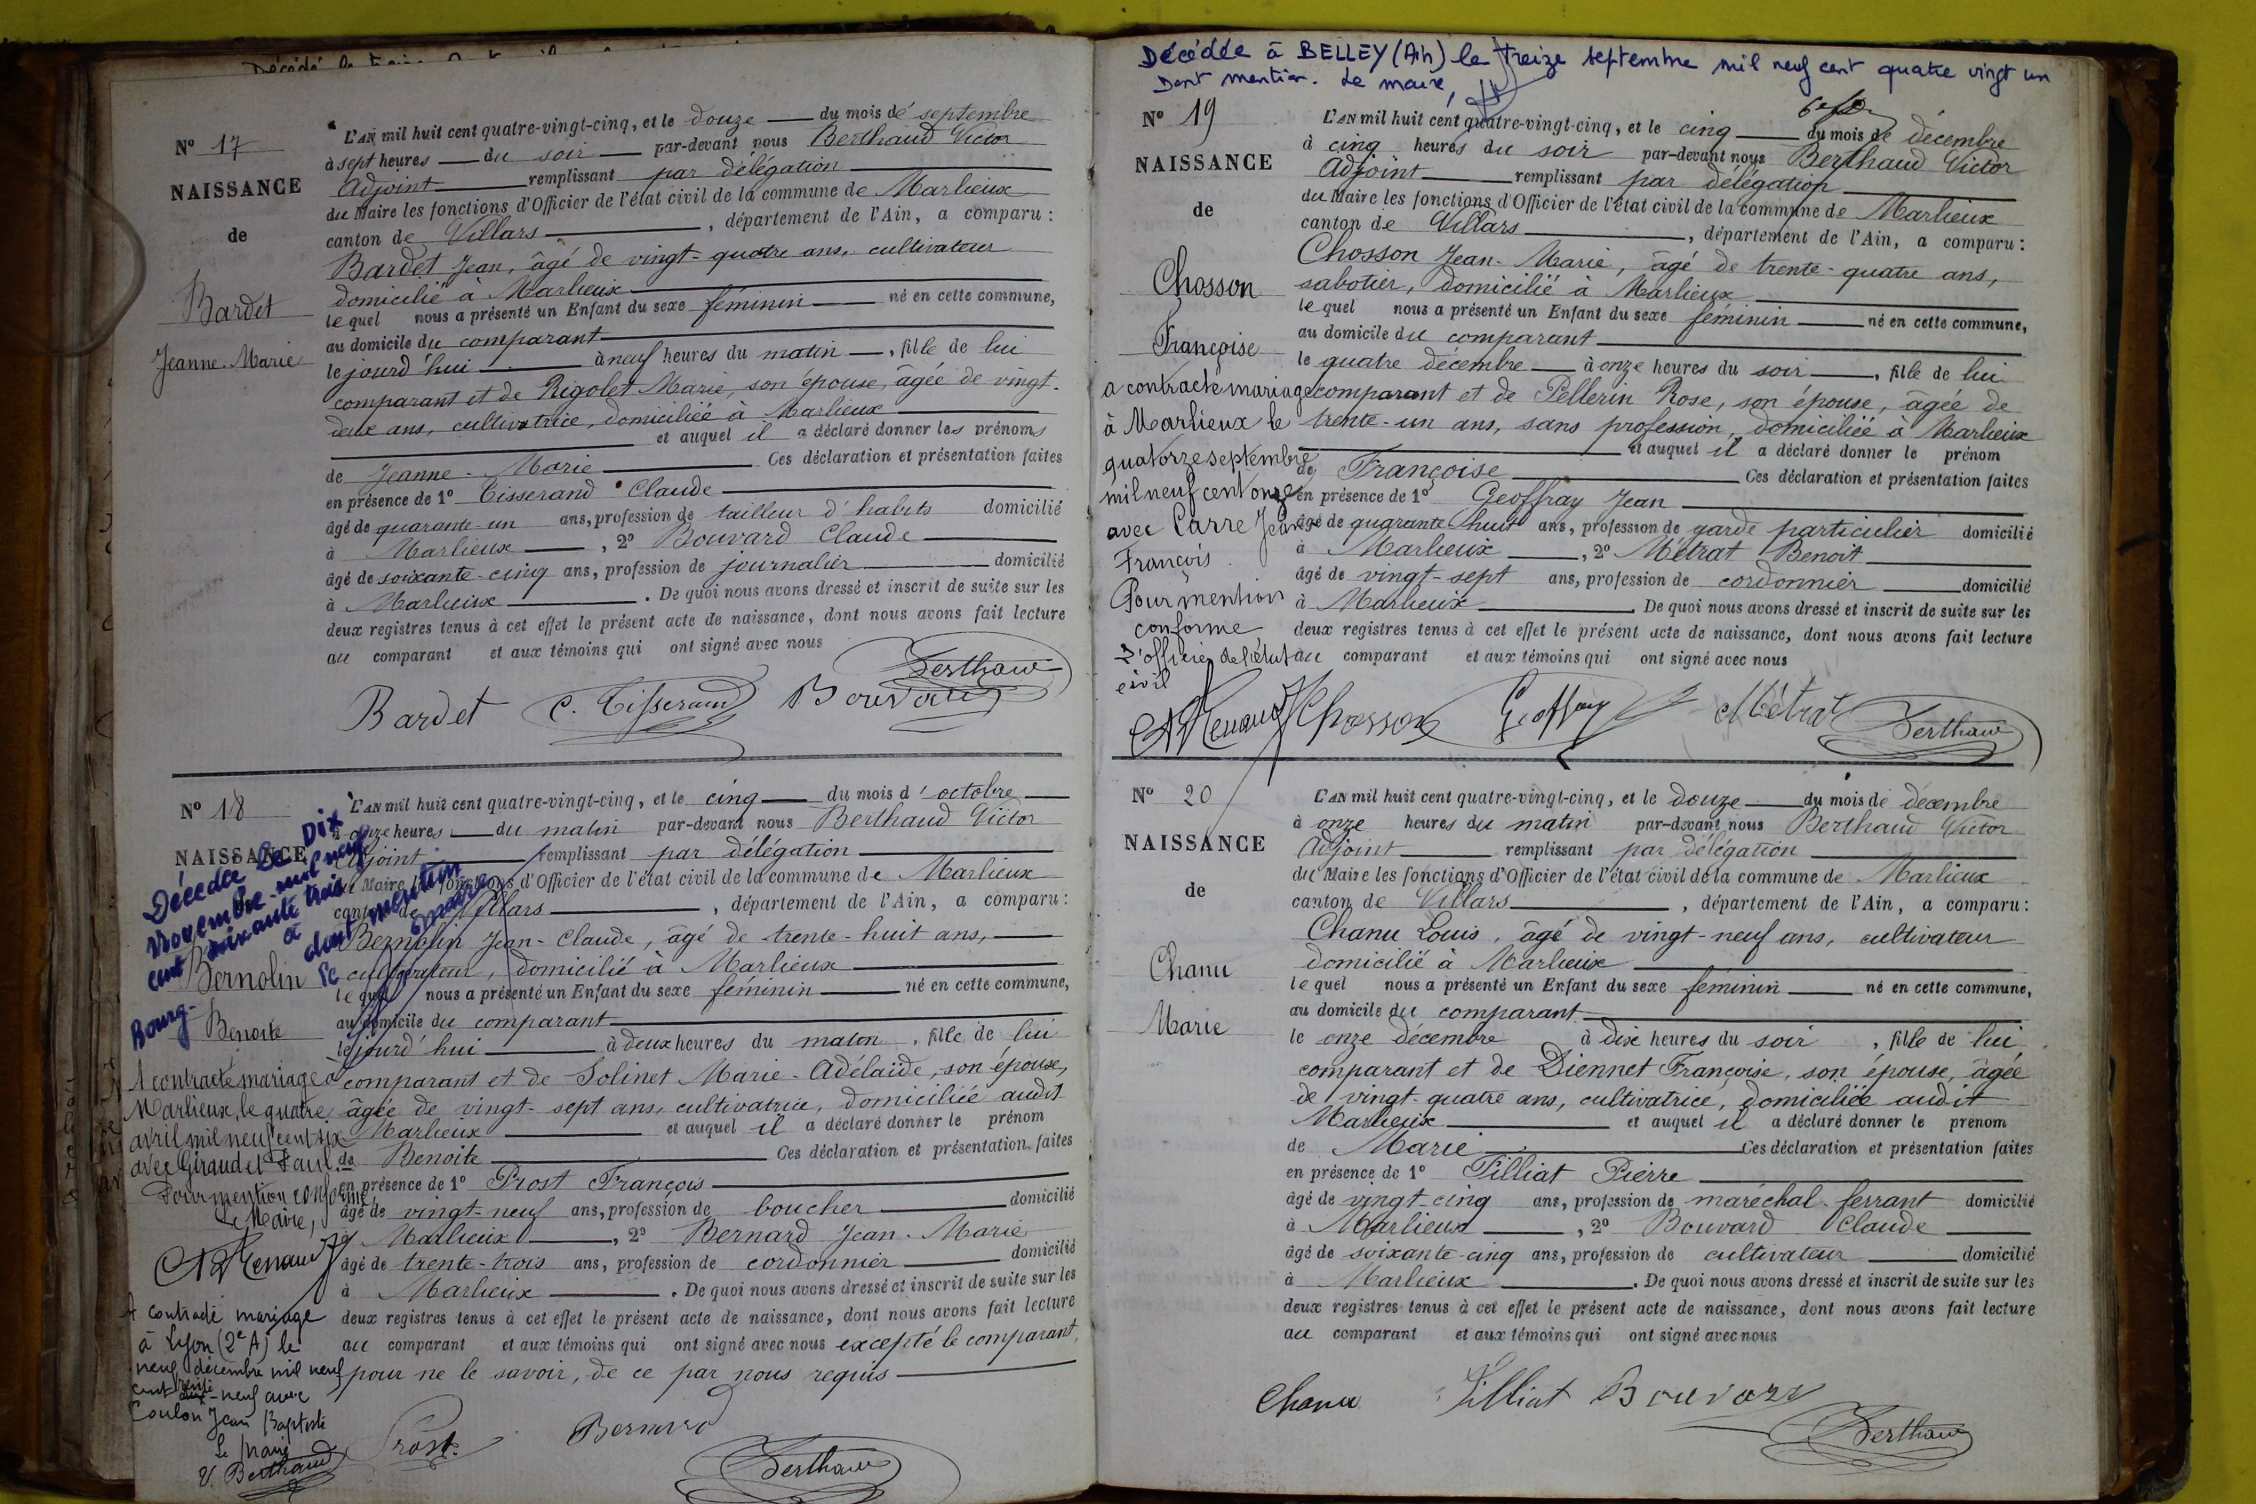 Nº 17
NAISSANCE
de
Bardet
Jeanne-Marie
L'AN mil huit cent quatre-vingt-cinq, et le douze du mois de septembre
à sept heures du soir par-devant nous Berthaud Victor
Adjoint remplissant par délégation
du Maire les fonctions d'Officier de l'état civil de la commune de Marlieux
canton de Villars, département de l'Ain, a comparu :
Bardet Jean, âgé de vingt-quatre ans, cultivateur
domicilié à Marlieux
lequel nous a présenté un Enfant du sexe féminin né en cette commune,
au domicile du comparant
le jourd'hui à neuf heures du matin, fille de lui
comparant et de Rigolet Marie, son épouse, âgée de vingt-
deux ans, cultivatrice, domiciliée à Marlieux
et auquel il a déclaré donner les prénoms
de Jeanne-Marie Ces déclaration et présentation faites
en présence de 1º Tisserand Claude
âgé de quarante-un ans, profession de tailleur d'habits domicilié
à Marlieux, 2º Bouvard Claude
âgé de soixante-cinq ans, profession de journalier domicilié
à Marlieux. De quoi nous avons dressé et inscrit de suite sur les
deux registres tenus à cet effet le présent acte de naissance, dont nous avons fait lecture
au comparant et aux témoins qui ont signé avec nous
Bardet C. Tisserand Bouvard Berthaud
Nº 18
NAISSANCE
Décédée le Dix
Novembre mil neuf
cent soixante trois
à
Bourg-
dont mention
Le maire
Bernolin
Benoite
A contracté mariage à
Marlieux, le quatre
avril mil neuf cent six
avec Giraudet Paul.
Pour mention conforme
Le Maire,
A contracté mariage
à Lyon (2e A) le
neuf décembre mil neuf
cent trente-neuf avec
Coulon Jean Baptiste
Le Maire
V. Berthaud
L'AN mil huit cent quatre-vingt-cinq, et le cinq du mois d'octobre
à onze heures du matin par-devant nous Berthaud Victor
Adjoint remplissant par délégation
du Maire les fonctions d'Officier de l'état civil de la commune de Marlieux
canton de Villars, département de l'Ain, a comparu :
Bernolin Jean-Claude, âgé de trente-huit ans,
cultivateur, domicilié à Marlieux
lequel nous a présenté un Enfant du sexe féminin né en cette commune,
au domicile du comparant
le jourd'hui à deux heures du matin, fille de lui
comparant et de Solinet Marie-Adélaïde, son épouse,
âgée de vingt-sept ans, cultivatrice, domiciliée audit
Marlieux et auquel il a déclaré donner le prénom
de Benoite Ces déclaration et présentation faites
en présence de 1º Prost François
âgé de vingt-neuf ans, profession de boucher domicilié
à Marlieux, 2º Bernard Jean-Marie
âgé de trente-trois ans, profession de cordonnier domicilié
à Marlieux. De quoi nous avons dressé et inscrit de suite sur les
deux registres tenus à cet effet le présent acte de naissance, dont nous avons fait lecture
au comparant et aux témoins qui ont signé avec nous excepté le comparant,
pour ne le savoir, de ce par nous requis
Prost Bernard Berthaud
Décédée à BELLEY (Ain) le treize septembre mil neuf cent quatre vingt un
Dont mention. Le maire,
Nº 19
NAISSANCE
de
Chosson
Françoise
a contracté mariage
à Marlieux le
quatorze septembre
mil neuf cent onze
avec Carre Jean
François.
Pour mention
conforme
L'officier de l'état
civil
L'AN mil huit cent quatre-vingt-cinq, et le cinq du mois de décembre
à cinq heures du soir par-devant nous Berthaud Victor
Adjoint remplissant par délégation
du Maire les fonctions d'Officier de l'état civil de la commune de Marlieux
canton de Villars, département de l'Ain, a comparu :
Chosson Jean-Marie, âgé de trente-quatre ans,
sabotier, domicilié à Marlieux
lequel nous a présenté un Enfant du sexe féminin né en cette commune,
au domicile du comparant
le quatre décembre à onze heures du soir, fille de lui
comparant et de Pellerin Rose, son épouse, âgée de
trente-un ans, sans profession, domiciliée à Marlieux
et auquel il a déclaré donner le prénom
de Françoise Ces déclaration et présentation faites
en présence de 1º Geoffray Jean
âgé de quarante-huit ans, profession de garde particulier domicilié
à Marlieux, 2º Métrat Benoit
âgé de vingt-sept ans, profession de cordonnier domicilié
à Marlieux. De quoi nous avons dressé et inscrit de suite sur les
deux registres tenus à cet effet le présent acte de naissance, dont nous avons fait lecture
au comparant et aux témoins qui ont signé avec nous
Chosson Geoffray Métrat Berthaud
Nº 20
NAISSANCE
de
Chanu
Marie
L'AN mil huit cent quatre-vingt-cinq, et le douze du mois de décembre
à onze heures du matin par-devant nous Berthaud Victor
Adjoint remplissant par délégation
du Maire les fonctions d'Officier de l'état civil de la commune de Marlieux
canton de Villars, département de l'Ain, a comparu :
Chanu Louis, âgé de vingt-neuf ans, cultivateur
domicilié à Marlieux
lequel nous a présenté un Enfant du sexe féminin né en cette commune,
au domicile du comparant
le onze décembre à dix heures du soir, fille de lui
comparant et de Diennet Françoise, son épouse, âgée
de vingt-quatre ans, cultivatrice, domiciliée audit
Marlieux et auquel il a déclaré donner le prénom
de Marie Ces déclaration et présentation faites
en présence de 1º Tilliat Pierre
âgé de vingt-cinq ans, profession de maréchal-ferrant domicilié
à Marlieux, 2º Bouvard Claude
âgé de soixante-cinq ans, profession de cultivateur domicilié
à Marlieux. De quoi nous avons dressé et inscrit de suite sur les
deux registres tenus à cet effet le présent acte de naissance, dont nous avons fait lecture
au comparant et aux témoins qui ont signé avec nous
Chanu Tilliat Bouvard
Berthaud